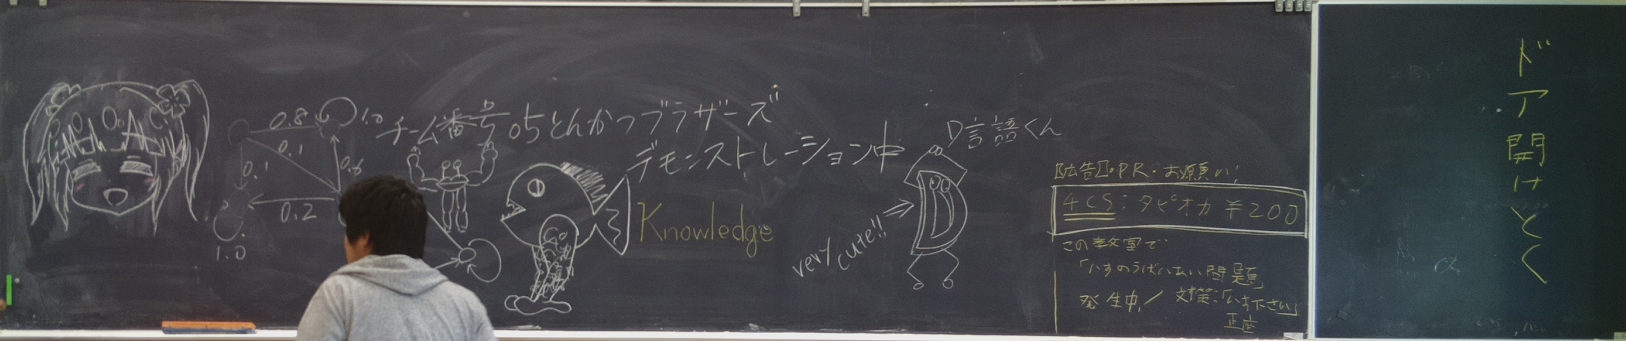 0.8
1.0
0.1
0.1
0.6
0.2
1.0
チーム番号05とんかつブラザーズ
デモンストレーション中
Knowledge
D言語くん
very cute!!
【広告】PR・お願い!
4CS:タピオカ ¥200
この教室で
「いすのうばいあい問題」
発生中/ 対策:「いす下さい」
正座
ドア開けとく